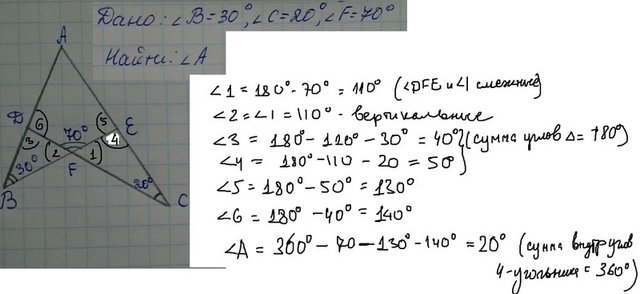 Дано: ∠B=30°, ∠C=20°, ∠F=70°
Найти: ∠A
A
D
6
5
E
70°
4
3
2
1
30°
F
20°
B
C
∠1 = 180° - 70° = 110° (∠DFE и ∠1 смежные)
∠2 = ∠1 = 110° - вертикальные
∠3 = 180° - 110° - 30° = 40° (сумма углов Δ = 180°)
∠4 = 180° - 110 - 20 = 50°
∠5 = 180° - 50° = 130°
∠6 = 180° - 40° = 140°
∠A = 360° - 70 - 130° - 140° = 20° (сумма внутр углов
4-угольника = 360°)